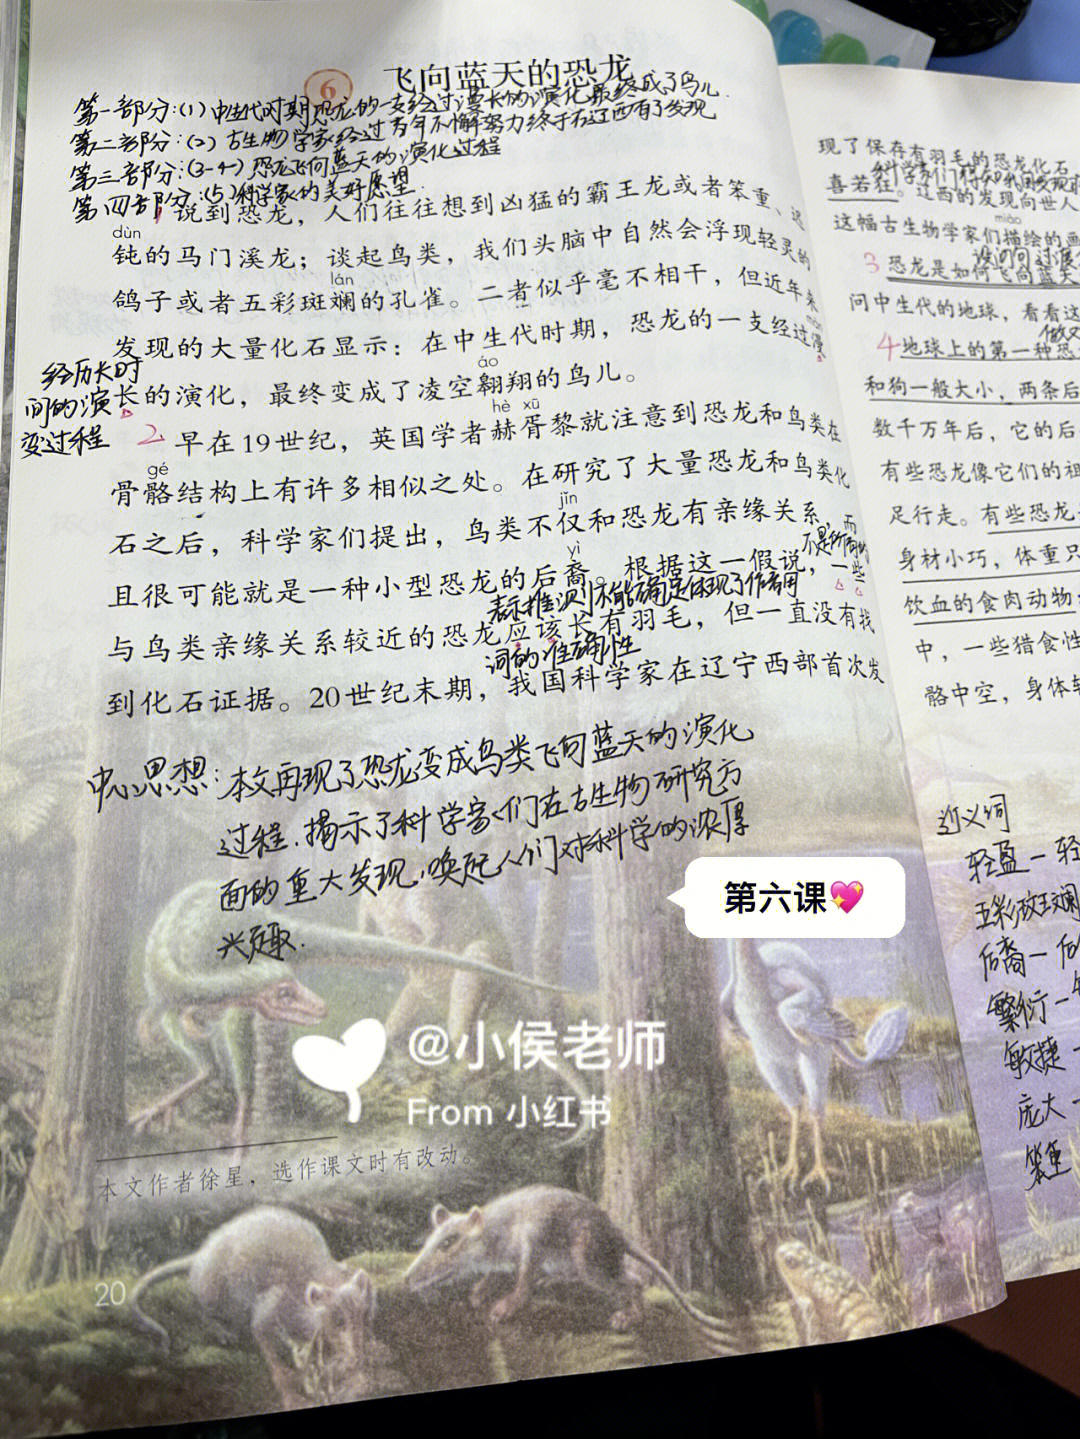 6 飞向蓝天的恐龙
第一部分:(1)中生代时期恐龙的一支经过漫长的演化最终成了鸟儿.
第二部分:(2)古生物学家经过百年不懈努力终于在辽西有了发现
第三部分:(3-4)恐龙飞向蓝天的演化过程
第四部分:(5)科学家的美好愿望.
1 说到恐龙，人们往往想到凶猛的霸王龙或者笨重、迟
dùn
钝的马门溪龙；谈起鸟类，我们头脑中自然会浮现轻灵的
lán
鸽子或者五彩斑斓的孔雀。二者似乎毫不相干，但近年来
màn
发现的大量化石显示：在中生代时期，恐龙的一支经过漫
经历长时
间的演
变过程
áo
长的演化，最终变成了凌空翱翔的鸟儿。
hè xū
2 早在19世纪，英国学者赫胥黎就注意到恐龙和鸟类在
gé
骨骼结构上有许多相似之处。在研究了大量恐龙和鸟类化
jǐn
石之后，科学家们提出，鸟类不仅和恐龙有亲缘关系，而
yì
不是所有的
且很可能就是一种小型恐龙的后裔。根据这一假说，一些
表示推测不能确定体现了作者用
与鸟类亲缘关系较近的恐龙应该长有羽毛，但一直没有找
词的准确性
到化石证据。20世纪末期，我国科学家在辽宁西部首次发
中心思想:本文再现了恐龙变成鸟类飞向蓝天的演化
过程.揭示了科学家们在古生物研究方
面的重大发现,唤起人们对科学的浓厚
兴趣.
第六课💖
@小侯老师
From 小红书
本文作者徐星，选作课文时有改动。
20
现了保存有羽毛的恐龙化石
科学家们得知
喜若狂。辽西的发现向世人
miáo
这幅古生物学家们描绘的画
设问句 过渡
3 恐龙是如何飞向蓝天
问中生代的地球，看看这
4 地球上的第一种恐
和狗一般大小，两条后
数千万年后，它的后
有些恐龙像它们的祖
足行走。有些恐龙
身材小巧，体重只
饮血的食肉动物
中，一些猎食性
骼中空，身体轻
近义词
轻盈—轻
五彩斑斓
后裔—后
繁衍—
敏捷—
庞大—
笨重